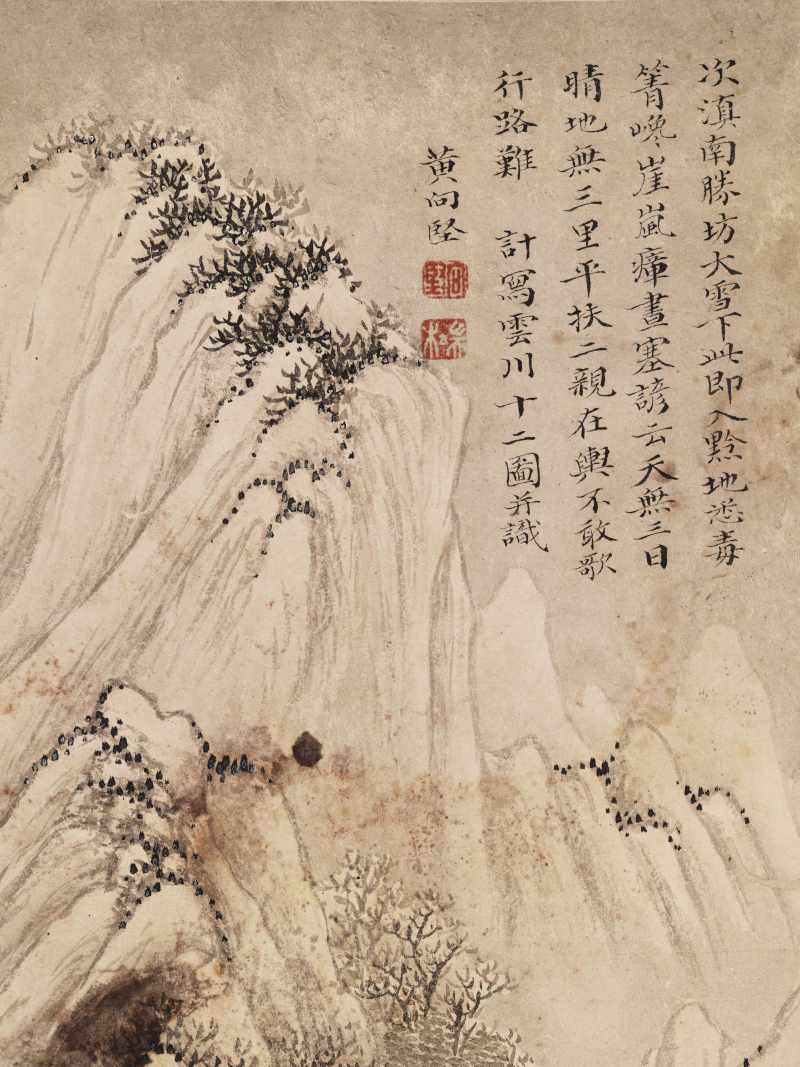 次滇南勝坊大雪下此即入黔地悉毒
箐巉崖嵐瘴晝塞諺云天無三日
晴地無三里平扶二親在輿不敢歌
行路難 計寫雲川十二圖并識
黄向堅